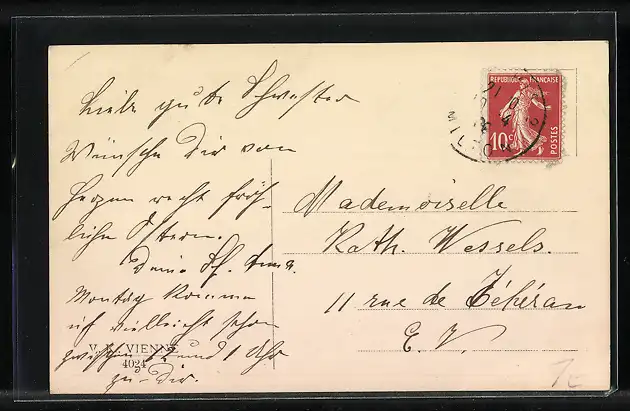 Liebe gute Schwester
Wünsche Dir von
Herzen recht fröh-
liche Ostern.
Deine Schw. Anna.
Montag komme
ich vielleicht schon
zwischen 12 und 1 Uhr
zu Dir.
V. K. VIENNE
4024
REPUBLIQUE FRANÇAISE
10c
POSTES
Mademoiselle
Kath. Wessels.
11 rue de Téhéran
E. V.